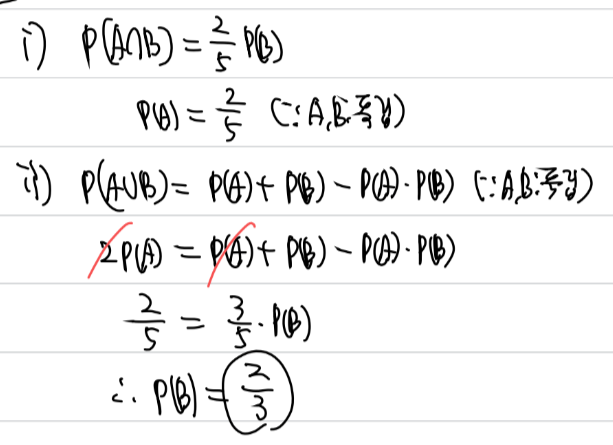 i) P(A∩B) = 2/5 P(B)
P(A) = 2/5 (∵ A, B: 독립)
ii) P(A∪B) = P(A) + P(B) - P(A)·P(B) (∵ A, B: 독립)
2P(A) = P(A) + P(B) - P(A)·P(B)
2/5 = 3/5 · P(B)
∴ P(B) = 2/3